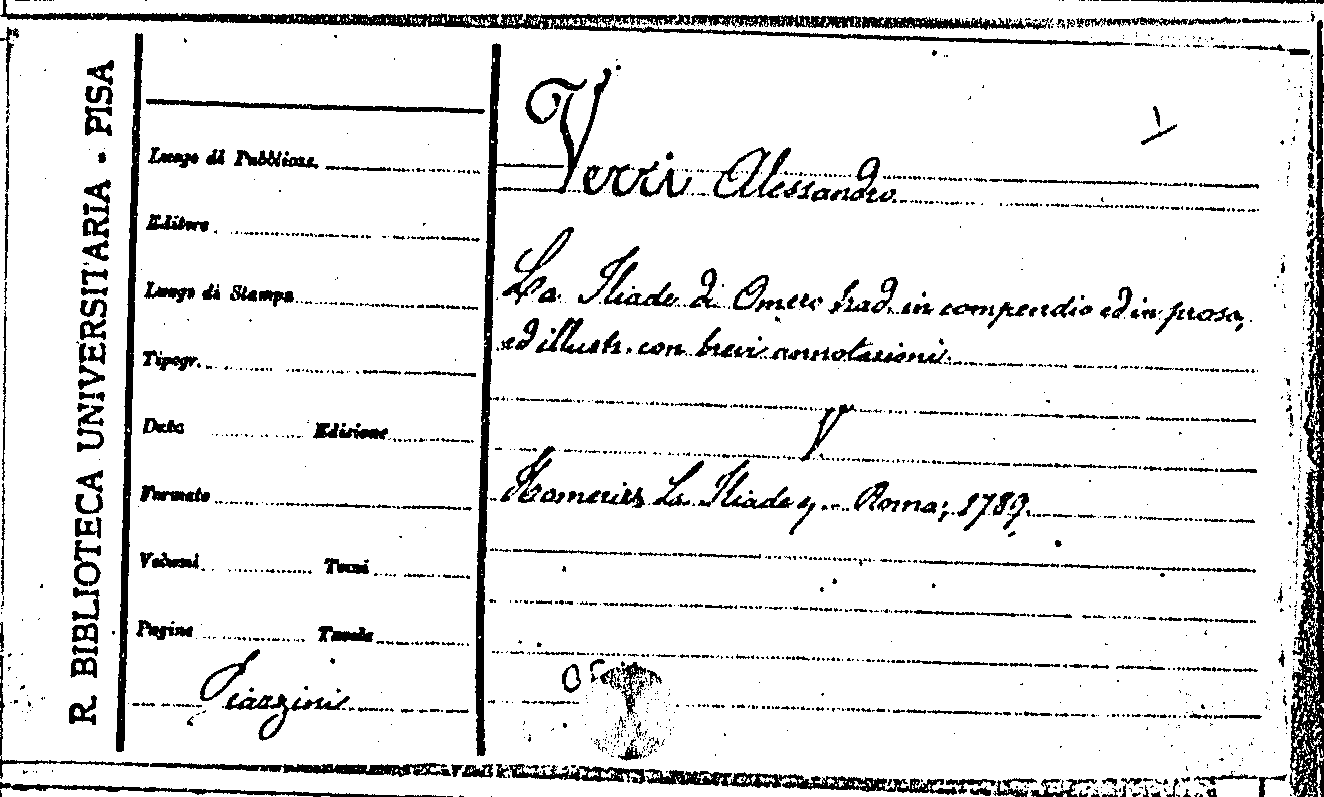 R. BIBLIOTECA UNIVERSITARIA - PISA
Luogo di Pubblicaz.
Editore
Luogo di Stampa
Tipogr.
Data Edizione
Formato
Volumi Tomi
Pagine Tavole
Piazzini
Verri Alessandro
La Iliade di Omero trad. in compendio ed in prosa,
ed illustr. con brevi annotazioni.
V
Homerus La Iliade Roma, 1789.